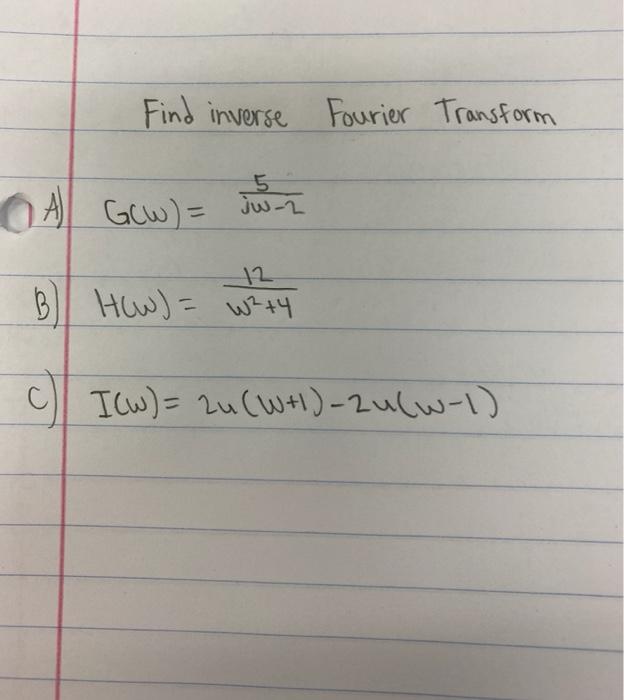 Find inverse Fourier Transform
A) G(w) = 5/(jw-2)
B) H(w) = 12/(w²+4)
C) I(w) = 2u(w+1)-2u(w-1)